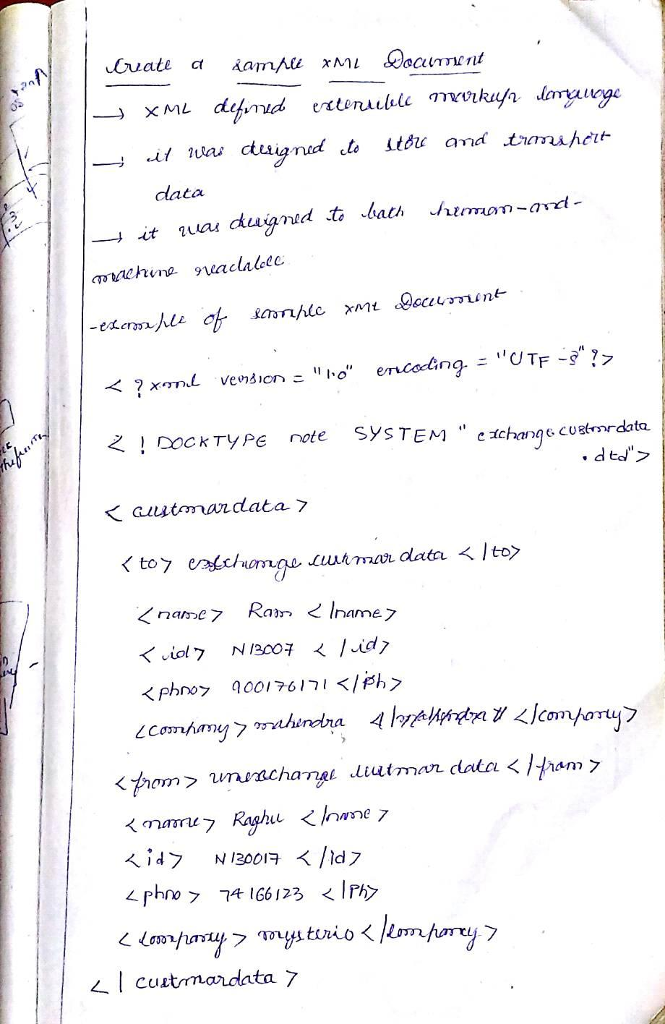 Create a sample XML Document
→ XML defined extensible markup language
→ it was designed to store and transport
data
→ it was designed to bath human-and-
machine readable
-example of sample XML Document
< ? xml version = "1.0" encoding = "UTF -8" ?>
< ! DOCKTYPE note SYSTEM " exchange custmrdata
.dtd">
< custmardata >
<to> exchange custmar data </to>
<name> Ram </name>
<id> N13007 </id>
<phno> 900176171 </ph>
<company> mahendra </company>
<from> unexchange custmar data </from>
<name> Raghu </name>
<id> N130017 </id>
<phno> 74166123 </ph>
<company> mysterio </company>
</ custmardata >